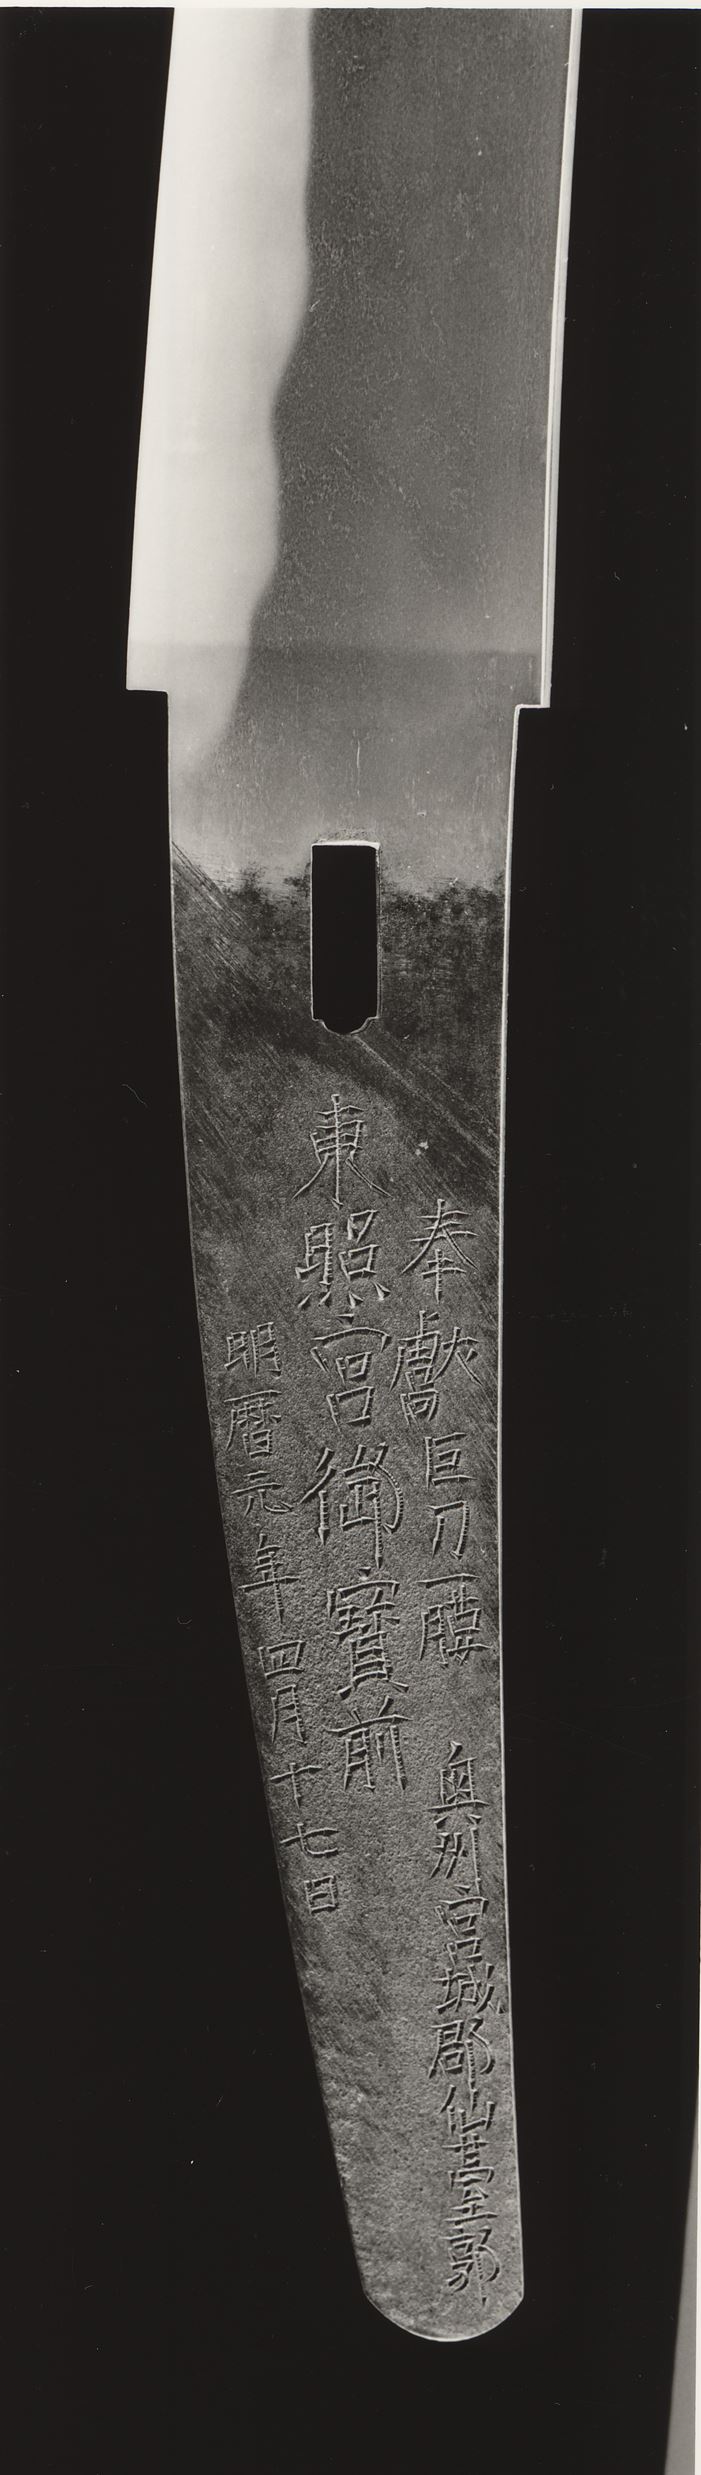 奉獻巨刀一腰 奥州宮城郡仙臺郭
東照宮御寳前
明暦元年四月十七日